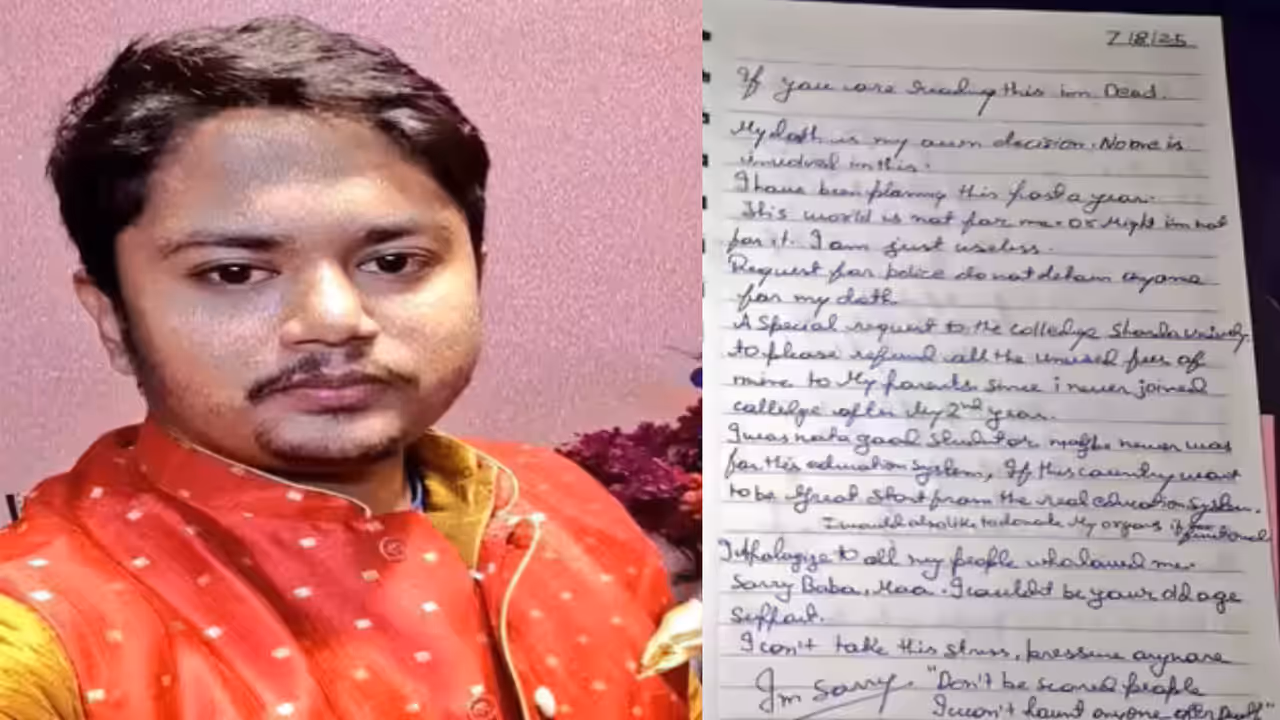 7/8/25
If you are reading this im Dead.
My dath is my own decision. No one is
involved in this.
I have been planing this for a year.
This world is not for me. Or Might im not
for it. I am just useless.
Request for police do not detain anyone
for my dath.
A Special request to the colledge Sharda
to please refund all the unused fees of
mine to My parents since i never joined
college after My 2nd year.
I was not a good student or maybe never was
for this education system, If this country want
to be great start from the real education system.
I would also like to donate My organs if functional
I Apologize to all my people who loved me.
Sorry Baba, Maa. I couldn't be your old age
support.
I can't take this stress, pressure anymore
I'm Sorry. "Don't be scared people
I won't haunt anyone after Death"